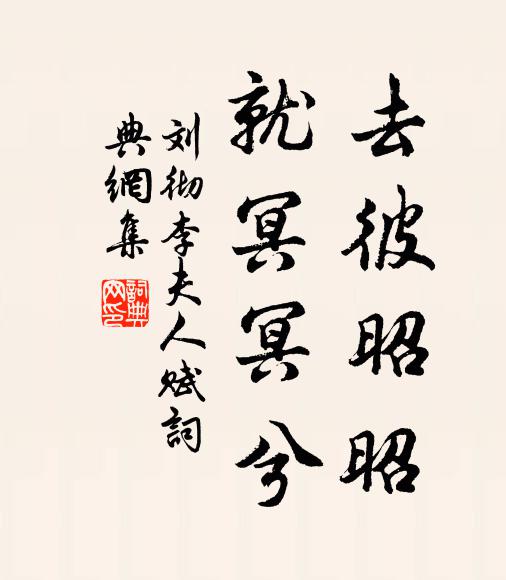 去彼昭昭
就冥冥兮
刘彻李夫人赋詞
典網集
詞典
网印